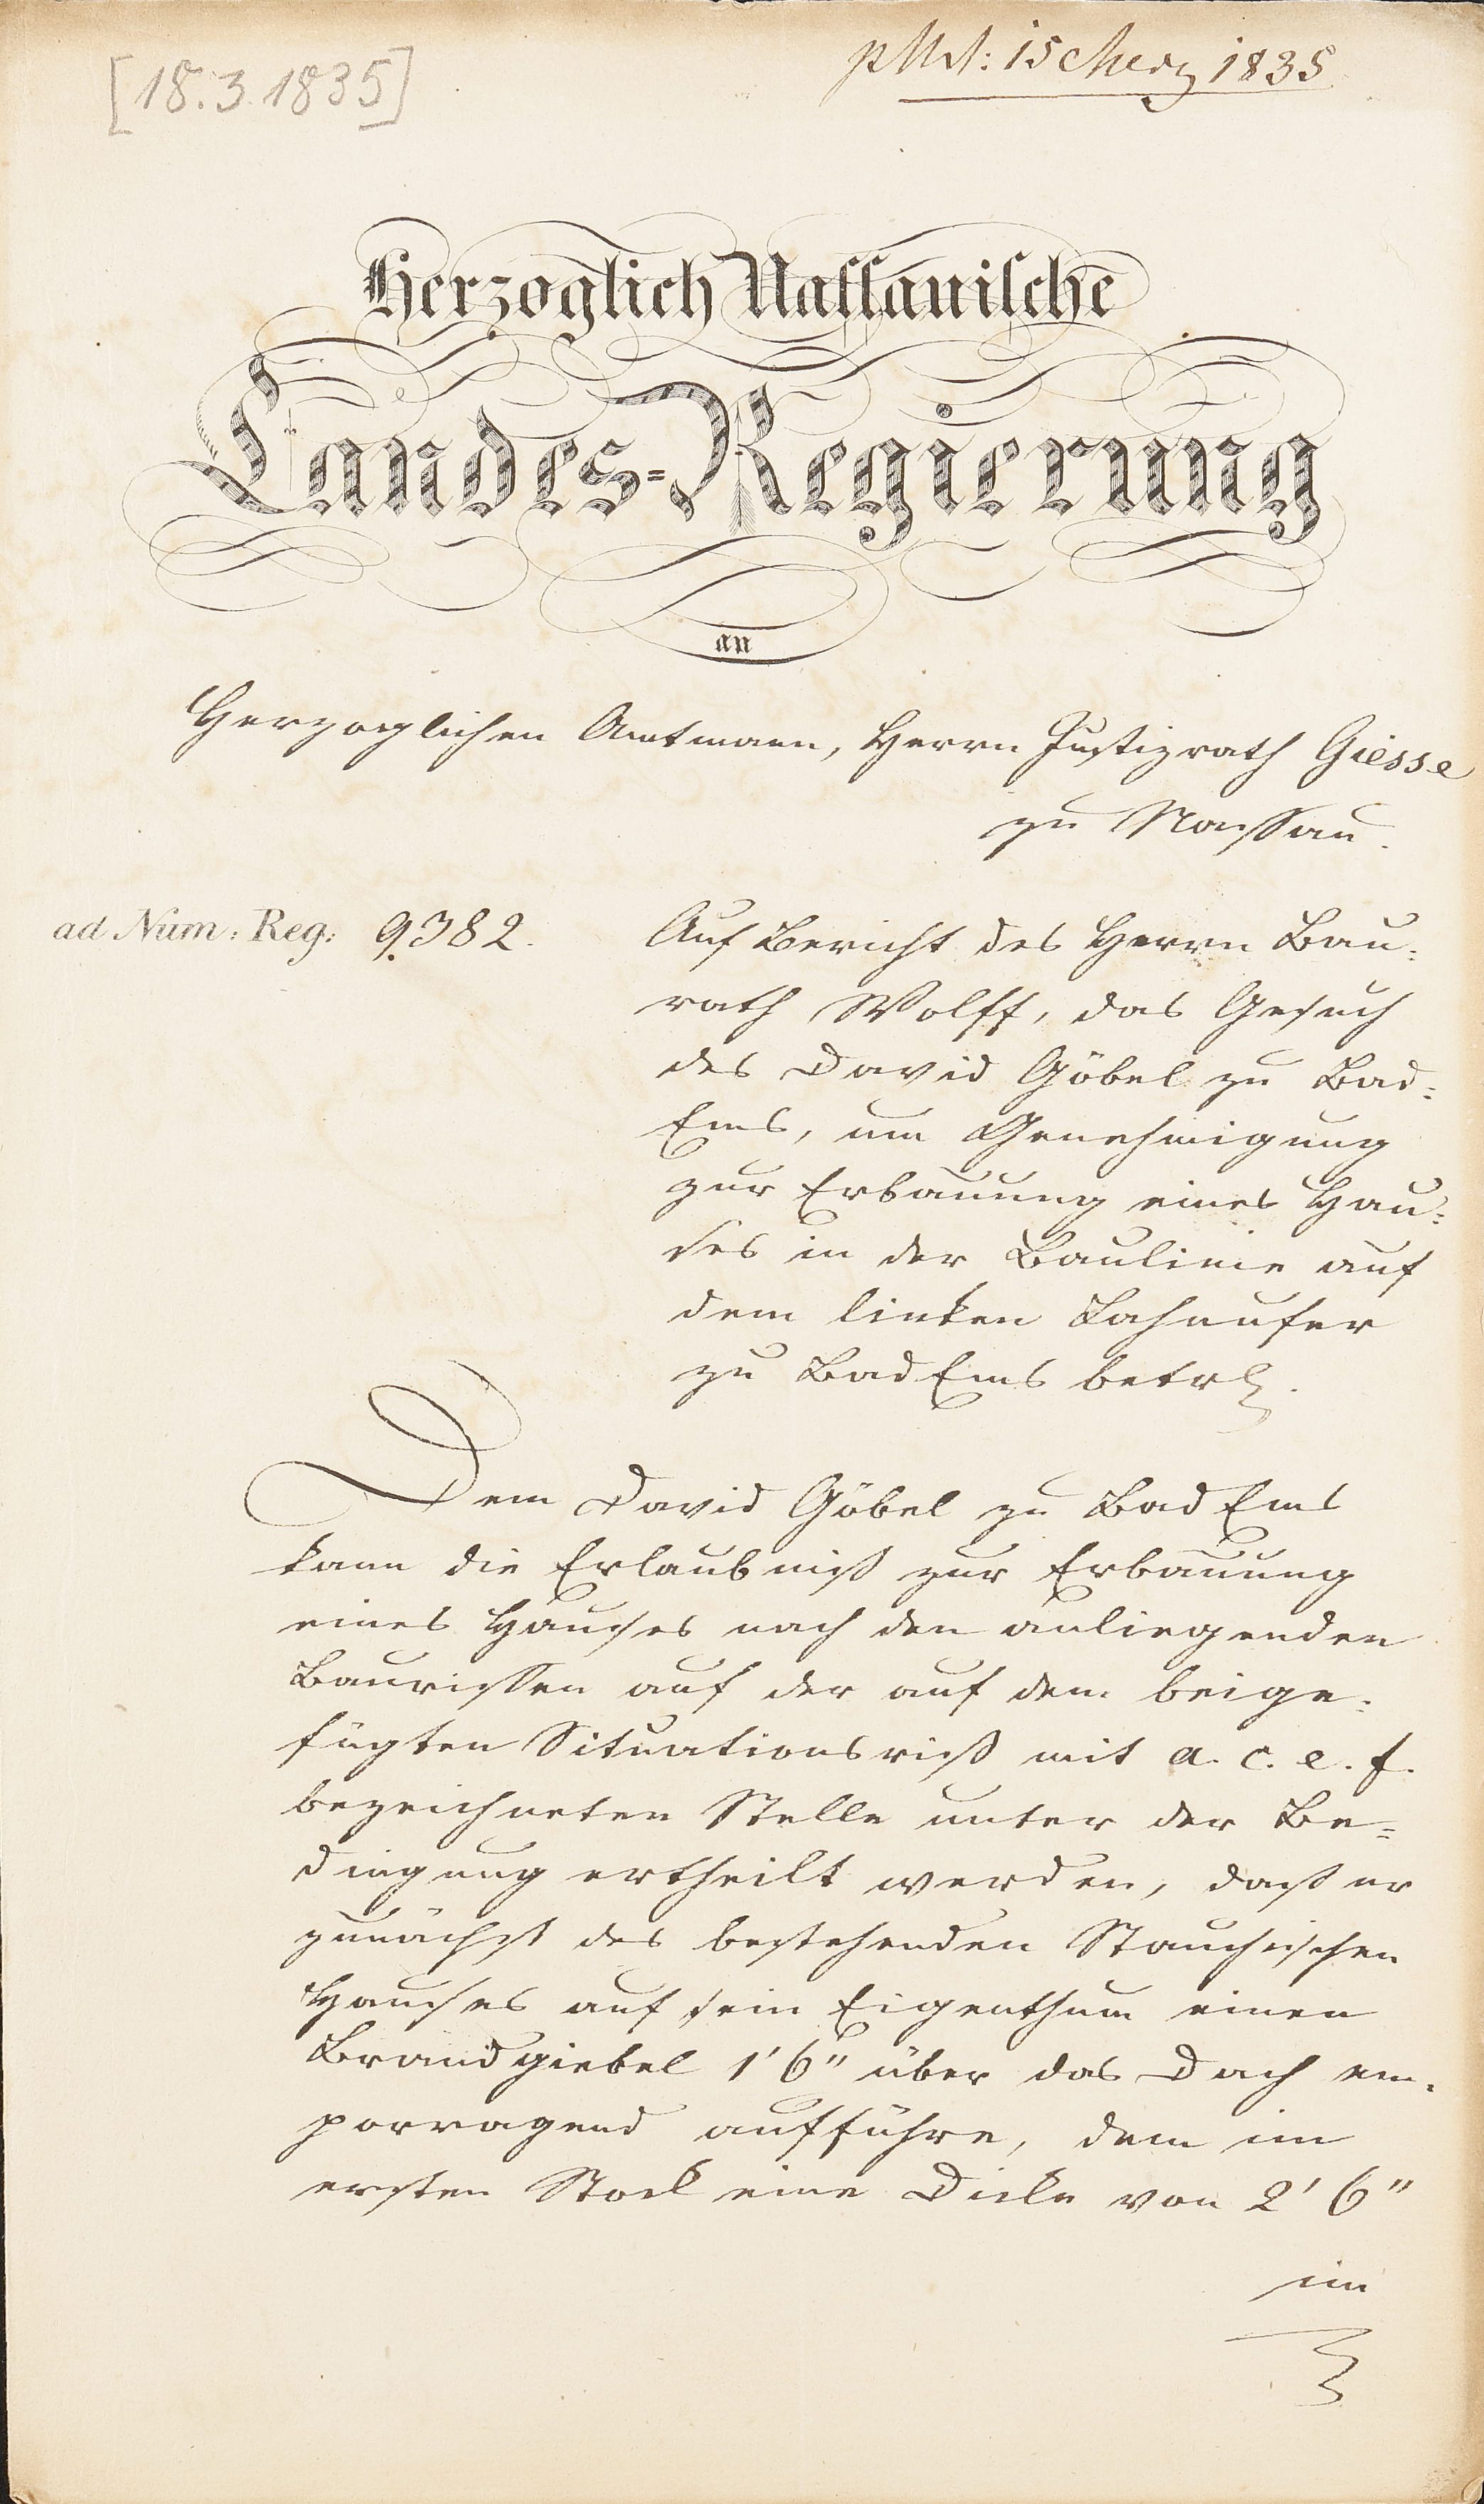 [18.3.1835]
15 Merz 1835
Herzoglich Nassauische
Landes-Regierung
an
Herzoglichen Amtmann, Herrn Justizrath Giesse
zu Nassau.
ad Num: Reg: 9382.
Auf Bericht des Herrn Bau-
rath Wolff, das Gesuch
des David Göbel zu Bad-
Ems, um Genehmigung
zur Erbauung eines Hau-
ses in der Baulinie auf
dem linken Lahnufer
zu Bad Ems betr.
Dem David Göbel zu Bad Ems
kann die Erlaubniß zur Erbauung
eines Hauses nach den anliegenden
Baurissen auf der auf dem beige-
fügten Situationsriß mit a. c. e. f.
bezeichneten Stelle unter der Be-
dingung ertheilt werden, daß er
zunächst des bestehenden Stauchischen
Hauses auf sein Eigenthum einen
Brandgiebel 1' 6" über das Dach em-
porragend aufführe, dem im
ersten Stock eine Dicke von 2' 6"
im